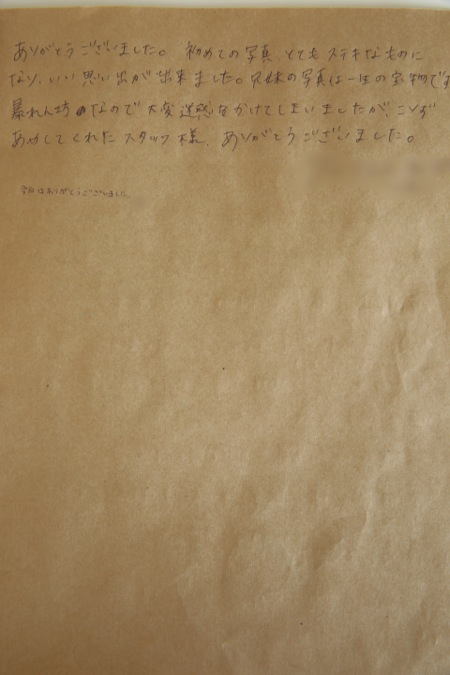 ありがとうございました。初めての写真、とてもステキなものに
なり、いい思い出が出来ました。兄妹の写真は一生の宝物です
暴れん坊なので大変迷惑をかけてしまいましたが、こんきよく
あやしてくれたスタッフ様、ありがとうございました。
今日はありがとうございました。